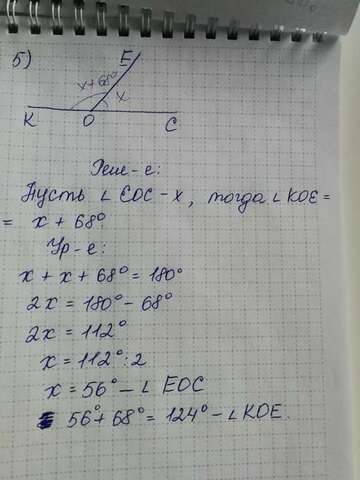 5)
E
x+68°
x
K O C
Реше-е:
Пусть ∠ EOC - x, тогда ∠ KOE =
= x + 68°
Ур-е:
x + x + 68° = 180°
2x = 180° - 68°
2x = 112°
x = 112° : 2
x = 56° - ∠ EOC
56° + 68° = 124° - ∠ KOE.